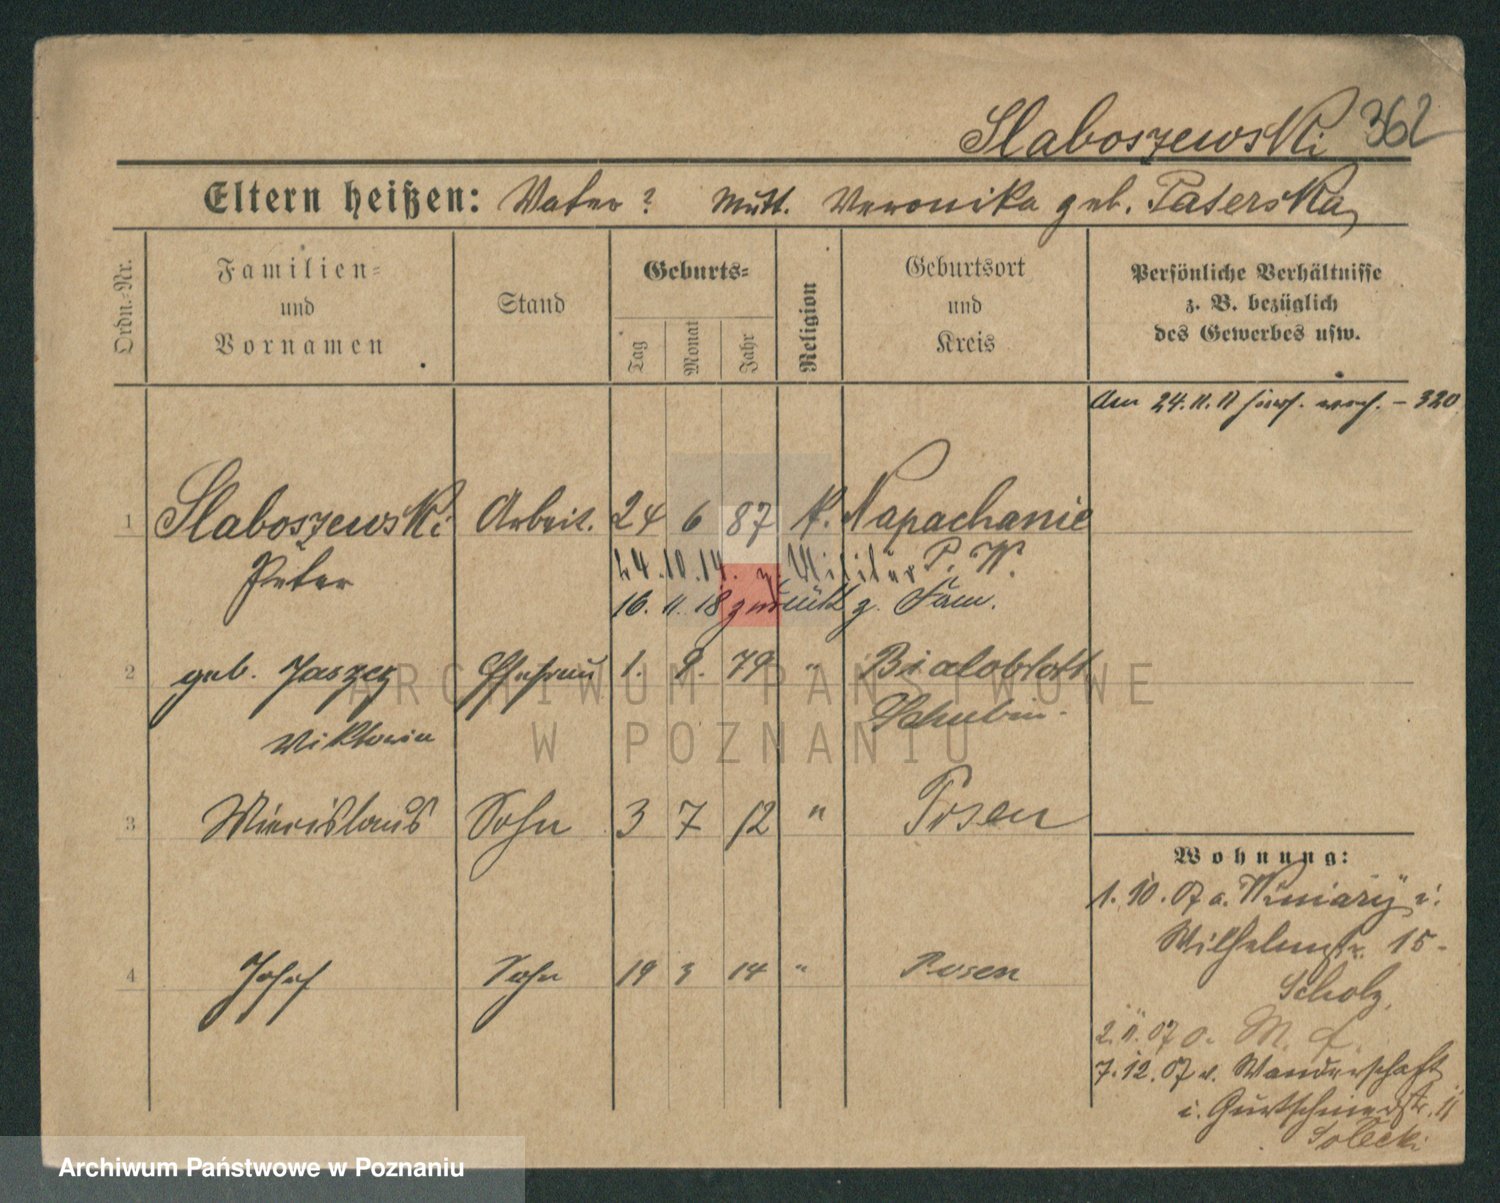 Slaboszewski 362
Eltern heißen: Vater? Mutt. Veronika geb. Paterska
Ordn.-Nr.
Familien-
und
Vornamen
Stand
Geburts-
Tag
Monat
Jahr
Religion
Geburtsort
und
Kreis
Persönliche Verhältnisse
z. B. bezüglich
des Gewerbes usw.
Am 24.11.11 - 320
1 Slaboszewski Arbeit. 24 6 87 k. Napachanie
Peter
24.10.14. z. Militär P. W.
16. 11. 18 zurück z. Fam.
2 geb. Jaszcz Ehefrau 1. 9. 79 " Bialoblott
Viktoria Schubin
3 Miecislaus Sohn 3 7 12 " Posen
4 Josef Sohn 19 3 14 " Posen
Wohnung:
1.10.07 a. Winiary i.
Wilhelmstr. 15-
Scholz
2.11.07 a.
7.12.07 v. Wanderschaft
i. 11
Solecki
ARCHIWUM PAŃSTWOWE
W POZNANIU
Archiwum Państwowe w Poznaniu